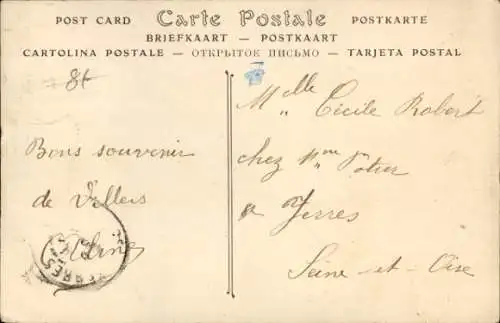 POST CARD Carte Postale POSTKARTE
BRIEFKAART — POSTKAART
CARTOLINA POSTALE — ОТКРЫТОЕ ПИСЬМО — TARJETA POSTAL
86
Bons souvenirs
de Villers
Melle Cécile Robert
chez Mme Potier
Yerres
Seine-et-Oise